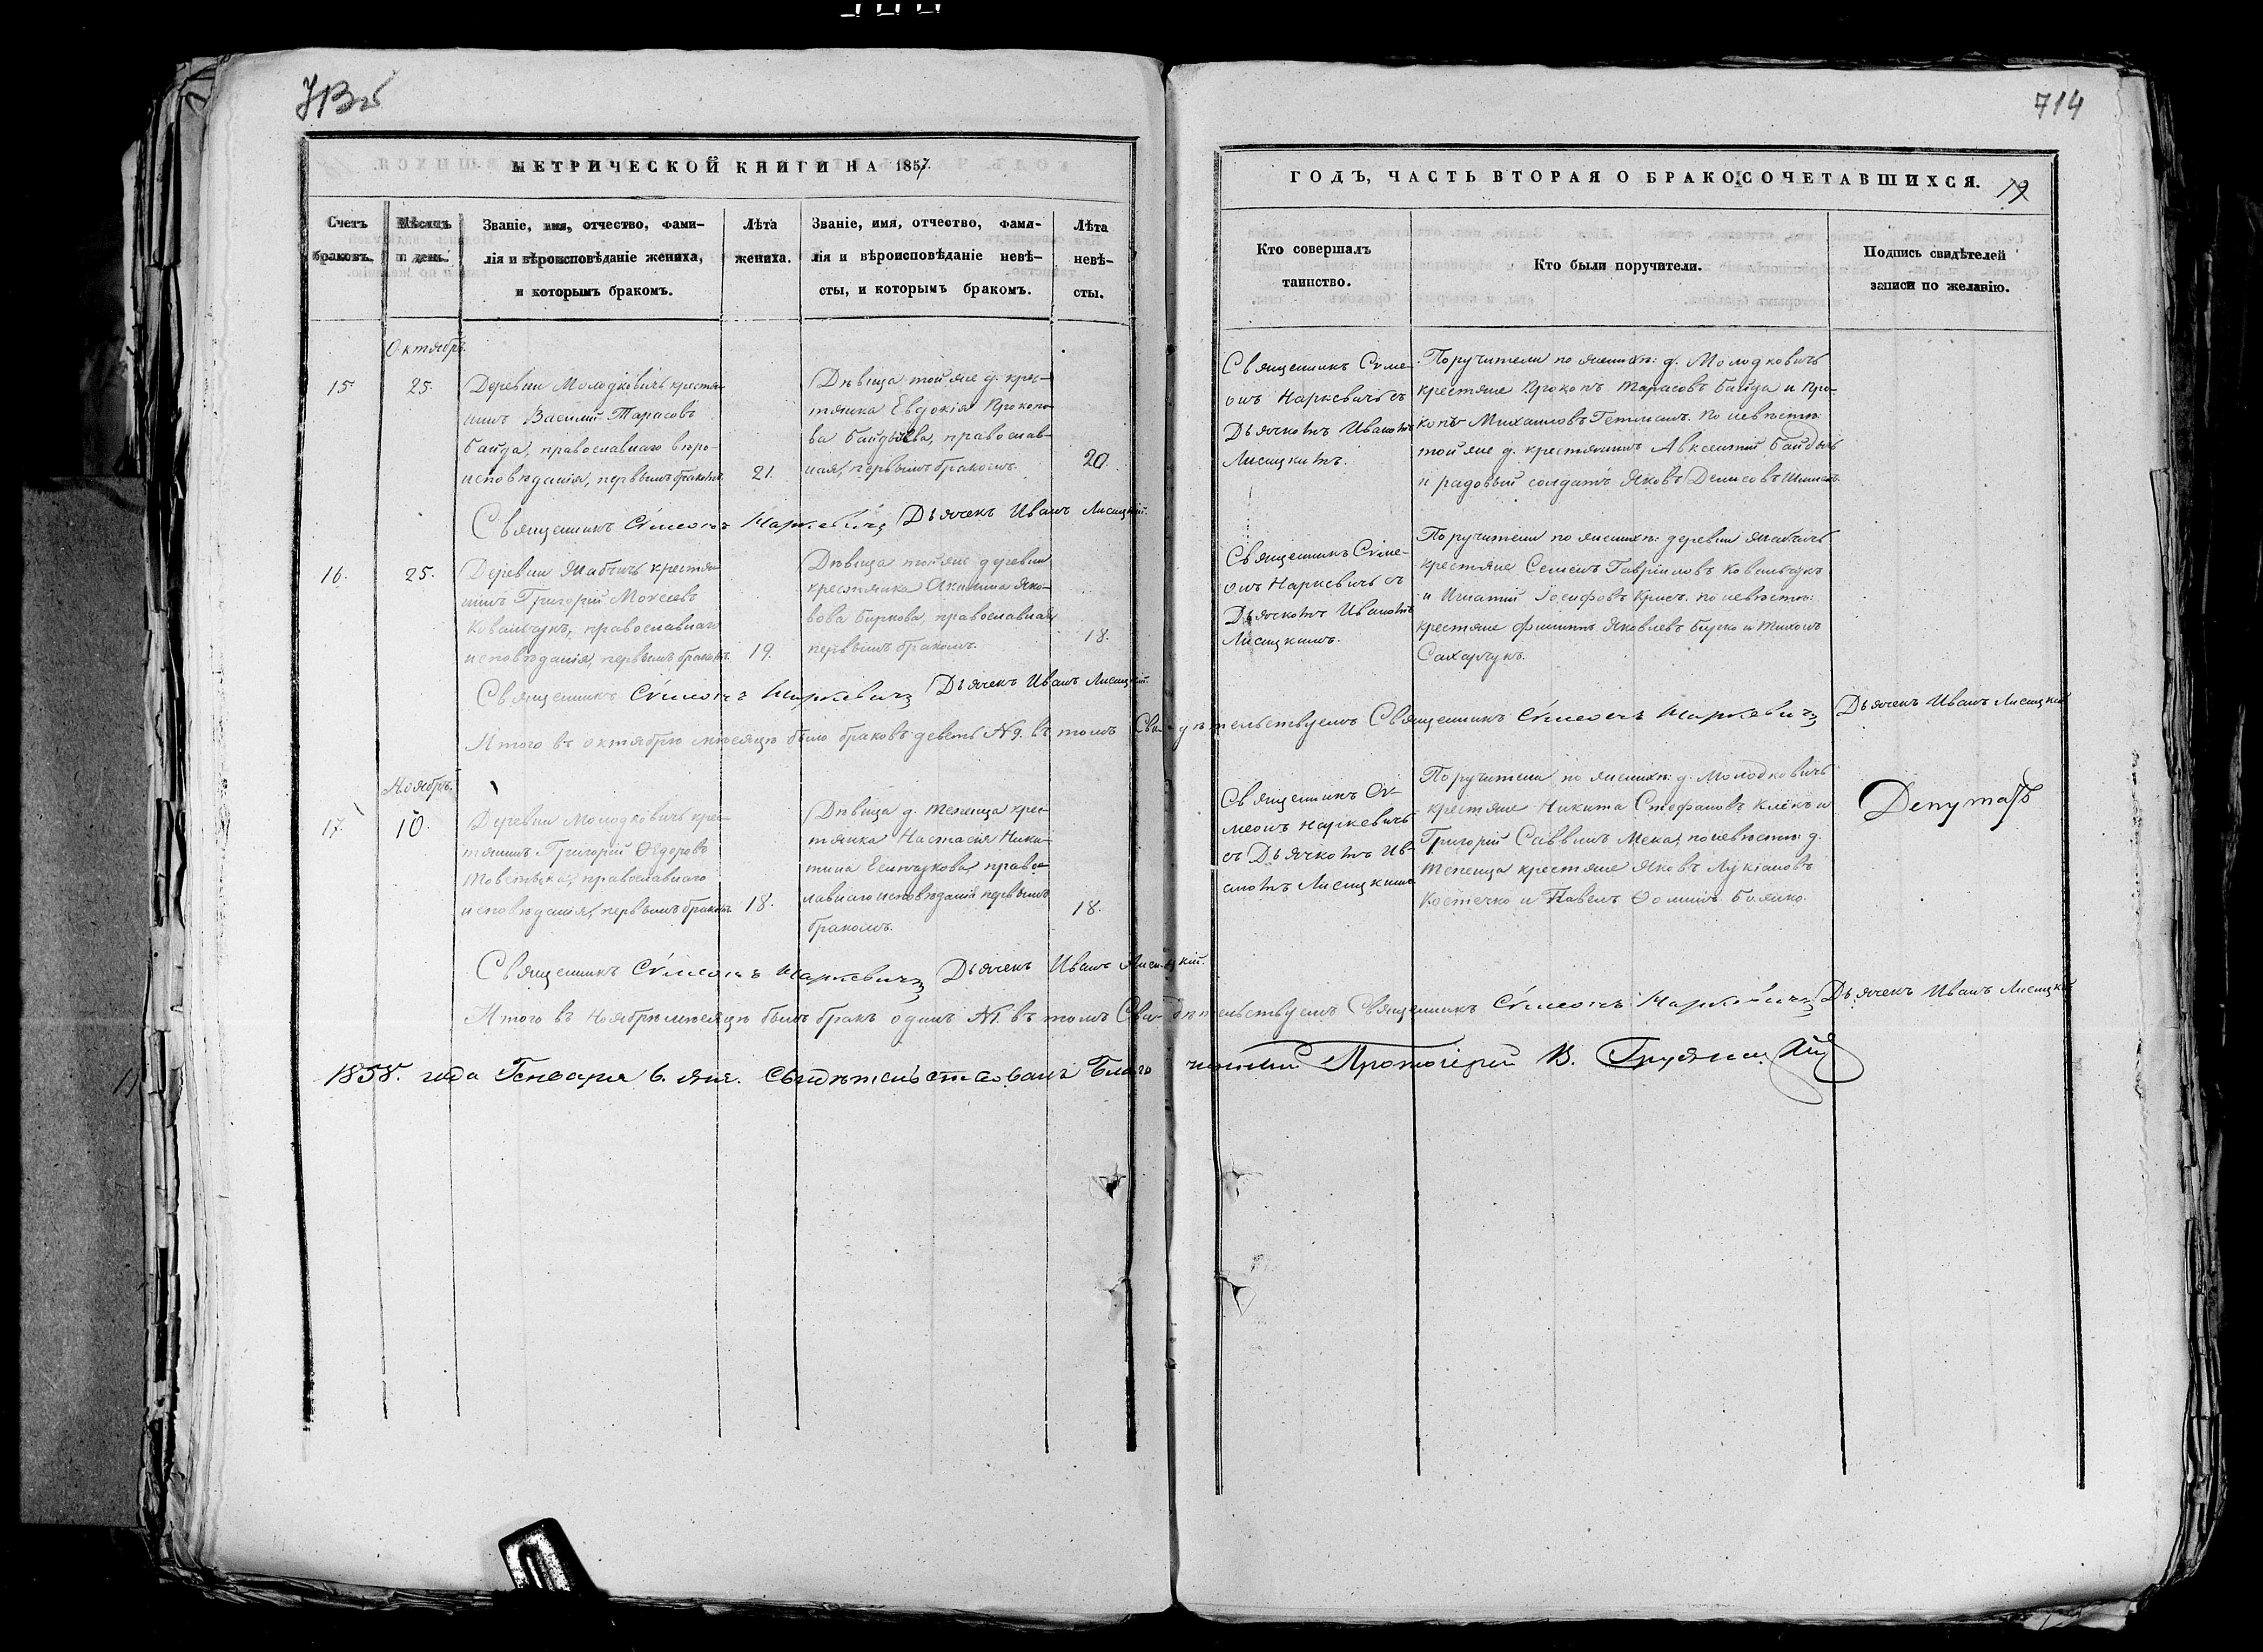 714
МЕТРИЧЕСКОЙ КНИГИ НА 1857.
ГОДЪ, ЧАСТЬ ВТОРАЯ О БРАКОСОЧЕТАВШИХСЯ.
19
Счетъ
браковъ.
Мѣсяцъ
и день.
Званіе, имя, отчество, фами-
лія и вѣроисповѣданіе жениха,
и которымъ бракомъ.
Лѣта
жениха.
Званіе, имя, отчество, фами-
лія и вѣроисповѣданіе невѣ-
сты, и которымъ бракомъ.
Лѣта
невѣ-
сты.
Кто совершалъ
таинство.
Кто были поручители.
Подпись свидѣтелей
записи по желанію.
Октябрь.
15
25.
Деревни Молодковичь крестья-
нинъ Василій Тарасовъ
Байда, православнаго вѣро-
исповѣданія, первымъ бракомъ.
21.
Дѣвица той же д. крес-
тянка Евдокія Прокопо-
ва Байдыева, православ-
ная, первымъ бракомъ.
20.
Священникъ Сѵме-
онъ Наркевичь съ
Дьячкомъ Иваномъ
Лисицкимъ.
Поручители по женихѣ: д. Молодковичь
крестяне Прокопъ Тарасовъ Байда и Про-
копъ Михаиловъ Гетманъ. По невѣстѣ
той же д. крестянинъ Авксентий Байдычь
и рядовый солдатъ Яковъ Денисовъ
Священникъ Сѵмеонъ Наркевичъ Дьячекъ Иванъ Лисицкій.
16.
25.
Деревни Жабчичь крестья-
нинъ Григорій Моисеевъ
Ковальчукъ, православнаго
исповѣданія, первымъ бракомъ.
19.
Дѣвица той же деревни
крестянка Акилина Яко-
вова Буркова, православная
первымъ бракомъ.
18.
Священникъ Сѵме-
онъ Наркевичь съ
Дьячкомъ Иваномъ
Лисицкимъ.
Поручители по женихѣ: деревни Жабчичь
крестяне Семенъ Гавріиловъ Ковальчукъ
и Игнатій Іосифовъ Крисъ. по невѣстѣ:
крестяне Филиппъ Яковлевъ Бурко и Тихонъ
Сахарчукъ.
Священникъ Сѵмеонъ Наркевичъ Дьячекъ Иванъ Лисицкій.
Итого въ октябрѣ мѣсяцѣ было браковъ девять №9. въ томъ Свидѣтельствуемъ Священникъ Сѵмеонъ Наркевичъ Дьячекъ Иванъ Лисицкій
Ноябрь.
17.
10.
Деревни Молодковичь крес-
тянинъ Григорій Ѳедоровъ
православнаго
исповѣданія, первымъ бракомъ
18.
Дѣвица д. Тепенца крес-
тянка Настасія Ники-
тина правос-
лавнаго исповѣданія первымъ
бракомъ.
18.
Священникъ Сѵ-
меонъ Наркевичь
съ Дьячкомъ Ив-
аномъ Лисицкимъ
Поручители по женихѣ: д. Молодковичь
крестяне Никита Стефановъ Клѣкъ и
Григорій Саввинъ Мека, по невѣстѣ д.
Тепенца крестяне Яковъ Лукіановъ
Костечко и Павелъ Ѳоминъ Божко.
Депутатъ
Священникъ Сѵмеонъ Наркевичъ Дьячекъ Иванъ Лисицкій.
Итого въ Ноябрѣ мѣсяцѣ былъ бракъ одинъ №1. въ томъ Свидѣтельствуемъ Священникъ Сѵмеонъ Наркевичъ Дьячекъ Иванъ Лисицкій
1858. года Генваря 6. дня. Свидѣтельствовалъ Благочинный Протоіерей В.